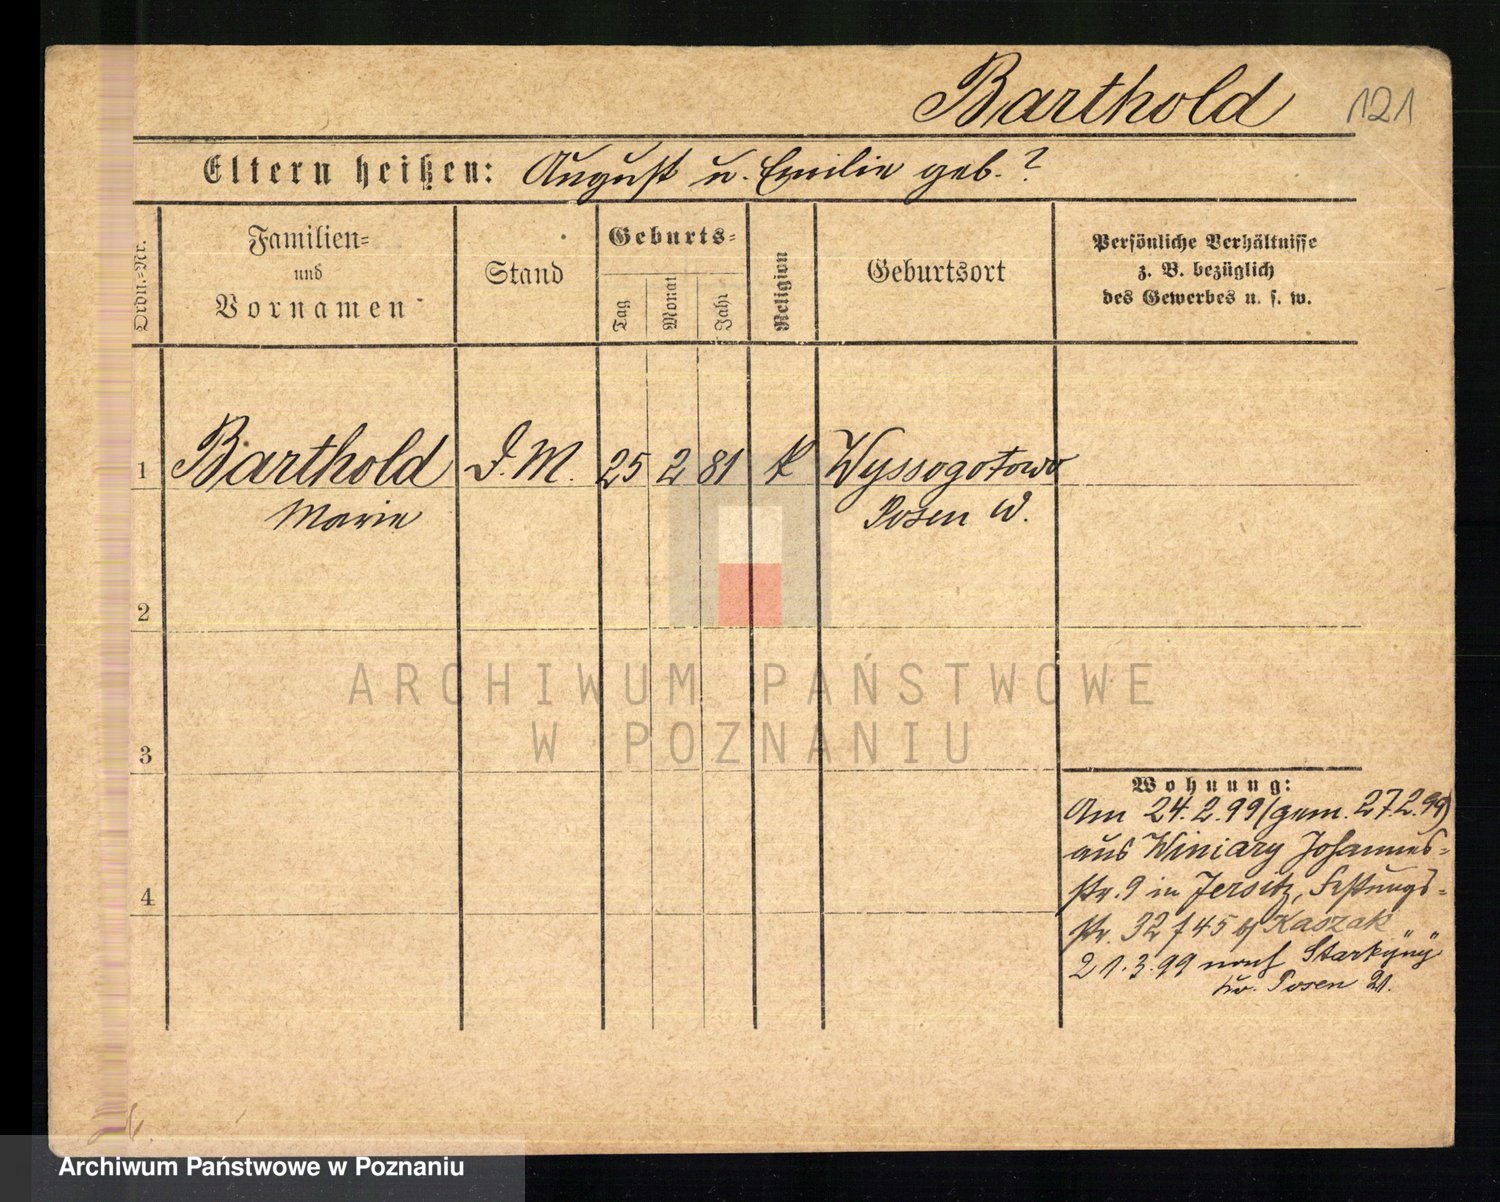 Barthold 121
Eltern heißen: August u. Emilie geb. ?
Ordn.-Nr.
Familien-
und
Vornamen
Stand
Geburts-
Tag
Monat
Jahr
Religion
Geburtsort
Persönliche Verhältnisse
z. B. bezüglich
des Gewerbes u. s. w.
1 Barthold D.M. 25 2 81 k Wyssogotowo
Marie Posen W.
2
ARCHIWUM PAŃSTWOWE
W POZNANIU
3
Wohnung:
Am 24.2.99 (gem. 27.2.99)
aus Winiary Johannes-
4
str. 9 in Jersitz, Festungs-
str. 32 f 45 bei Kaszak
21.3.99 nach
Kr. Posen
Archiwum Państwowe w Poznaniu